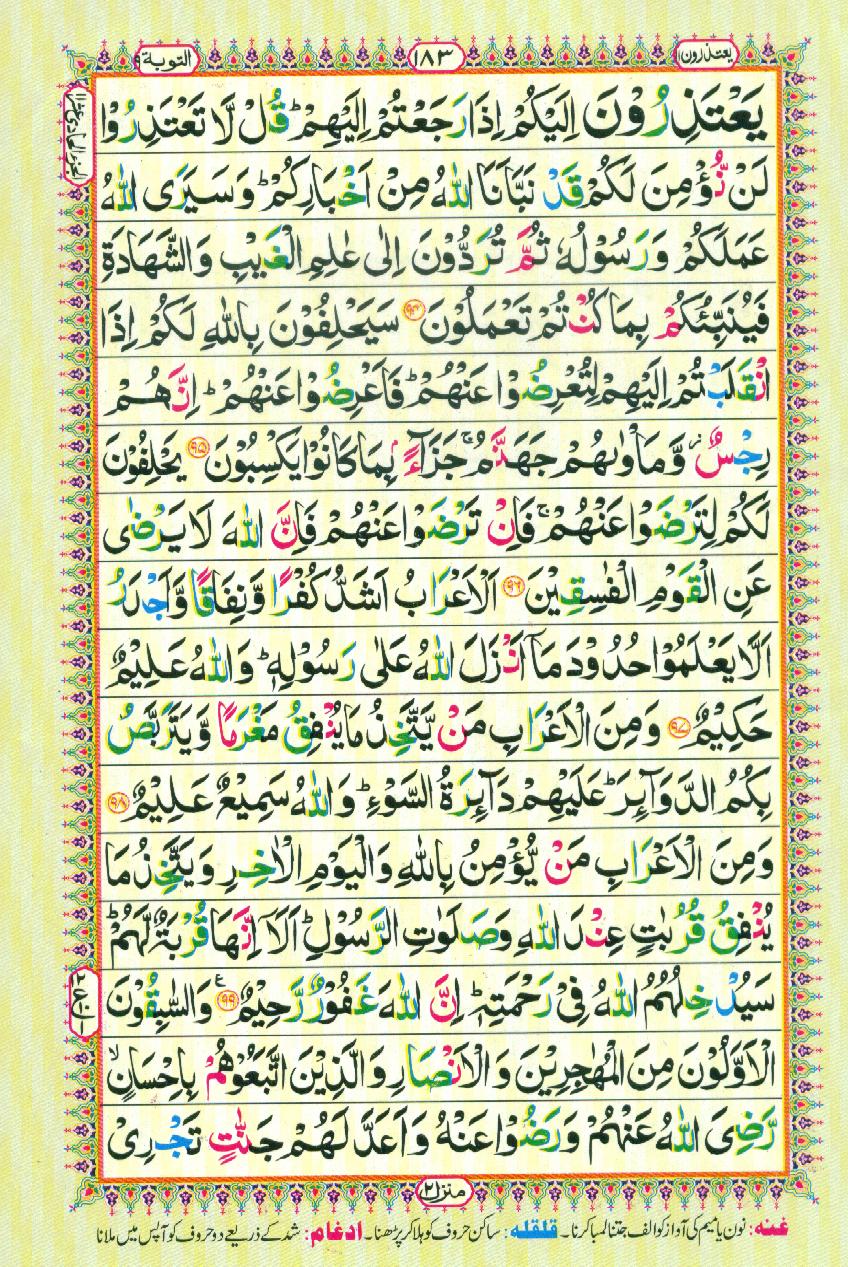 یعتذرون ۱۱
۱۸۳
التوبة ۹
یَعْتَذِرُوْنَ اِلَیْكُمْ اِذَا رَجَعْتُمْ اِلَیْهِمْ ؕ قُلْ لَّا تَعْتَذِرُوْا
لَنْ نُّؤْمِنَ لَكُمْ قَدْ نَبَّاَنَا اللّٰهُ مِنْ اَخْبَارِكُمْ ؕ وَ سَیَرَی اللّٰهُ
عَمَلَكُمْ وَ رَسُوْلُهٗ ثُمَّ تُرَدُّوْنَ اِلٰی عٰلِمِ الْغَیْبِ وَ الشَّهَادَةِ
فَیُنَبِّئُكُمْ بِمَا كُنْتُمْ تَعْمَلُوْنَ ۹۴ سَیَحْلِفُوْنَ بِاللّٰهِ لَكُمْ اِذَا
انْقَلَبْتُمْ اِلَیْهِمْ لِتُعْرِضُوْا عَنْهُمْ ؕ فَاَعْرِضُوْا عَنْهُمْ ؕ اِنَّهُمْ
رِجْسٌ ؗ وَّ مَاْوٰىهُمْ جَهَنَّمُ ۚ جَزَآءًۢ بِمَا كَانُوْا یَكْسِبُوْنَ ۹۵ یَحْلِفُوْنَ
لَكُمْ لِتَرْضَوْا عَنْهُمْ ۚ فَاِنْ تَرْضَوْا عَنْهُمْ فَاِنَّ اللّٰهَ لَا یَرْضٰی
عَنِ الْقَوْمِ الْفٰسِقِیْنَ ۹۶ اَلْاَعْرَابُ اَشَدُّ كُفْرًا وَّ نِفَاقًا وَّ اَجْدَرُ
اَلَّا یَعْلَمُوْا حُدُوْدَ مَاۤ اَنْزَلَ اللّٰهُ عَلٰی رَسُوْلِهٖ ؕ وَ اللّٰهُ عَلِیْمٌ
حَكِیْمٌ ۹۷ وَ مِنَ الْاَعْرَابِ مَنْ یَّتَّخِذُ مَا یُنْفِقُ مَغْرَمًا وَّ یَتَرَبَّصُ
بِكُمُ الدَّوَآئِرَ ؕ عَلَیْهِمْ دَآئِرَةُ السَّوْءِ ؕ وَ اللّٰهُ سَمِیْعٌ عَلِیْمٌ ۹۸
وَ مِنَ الْاَعْرَابِ مَنْ یُّؤْمِنُ بِاللّٰهِ وَ الْیَوْمِ الْاٰخِرِ وَ یَتَّخِذُ مَا
یُنْفِقُ قُرُبٰتٍ عِنْدَ اللّٰهِ وَ صَلَوٰتِ الرَّسُوْلِ ؕ اَلَاۤ اِنَّهَا قُرْبَةٌ لَّهُمْ ؕ
سَیُدْخِلُهُمُ اللّٰهُ فِیْ رَحْمَتِهٖ ؕ اِنَّ اللّٰهَ غَفُوْرٌ رَّحِیْمٌ ۹۹ ع وَ السّٰبِقُوْنَ
الْاَوَّلُوْنَ مِنَ الْمُهٰجِرِیْنَ وَ الْاَنْصَارِ وَ الَّذِیْنَ اتَّبَعُوْهُمْ بِاِحْسَانٍ ۙ
رَّضِیَ اللّٰهُ عَنْهُمْ وَ رَضُوْا عَنْهُ وَ اَعَدَّ لَهُمْ جَنّٰتٍ تَجْرِیْ
منزل ۲
غنه: نون یا میم کی آواز کو الف جتنا لمبا کرنا۔ قلقله: ساکن حروف کو ہلا کر پڑھنا۔ ادغام: شد کے ذریعے دو حروف کو آپس میں ملانا